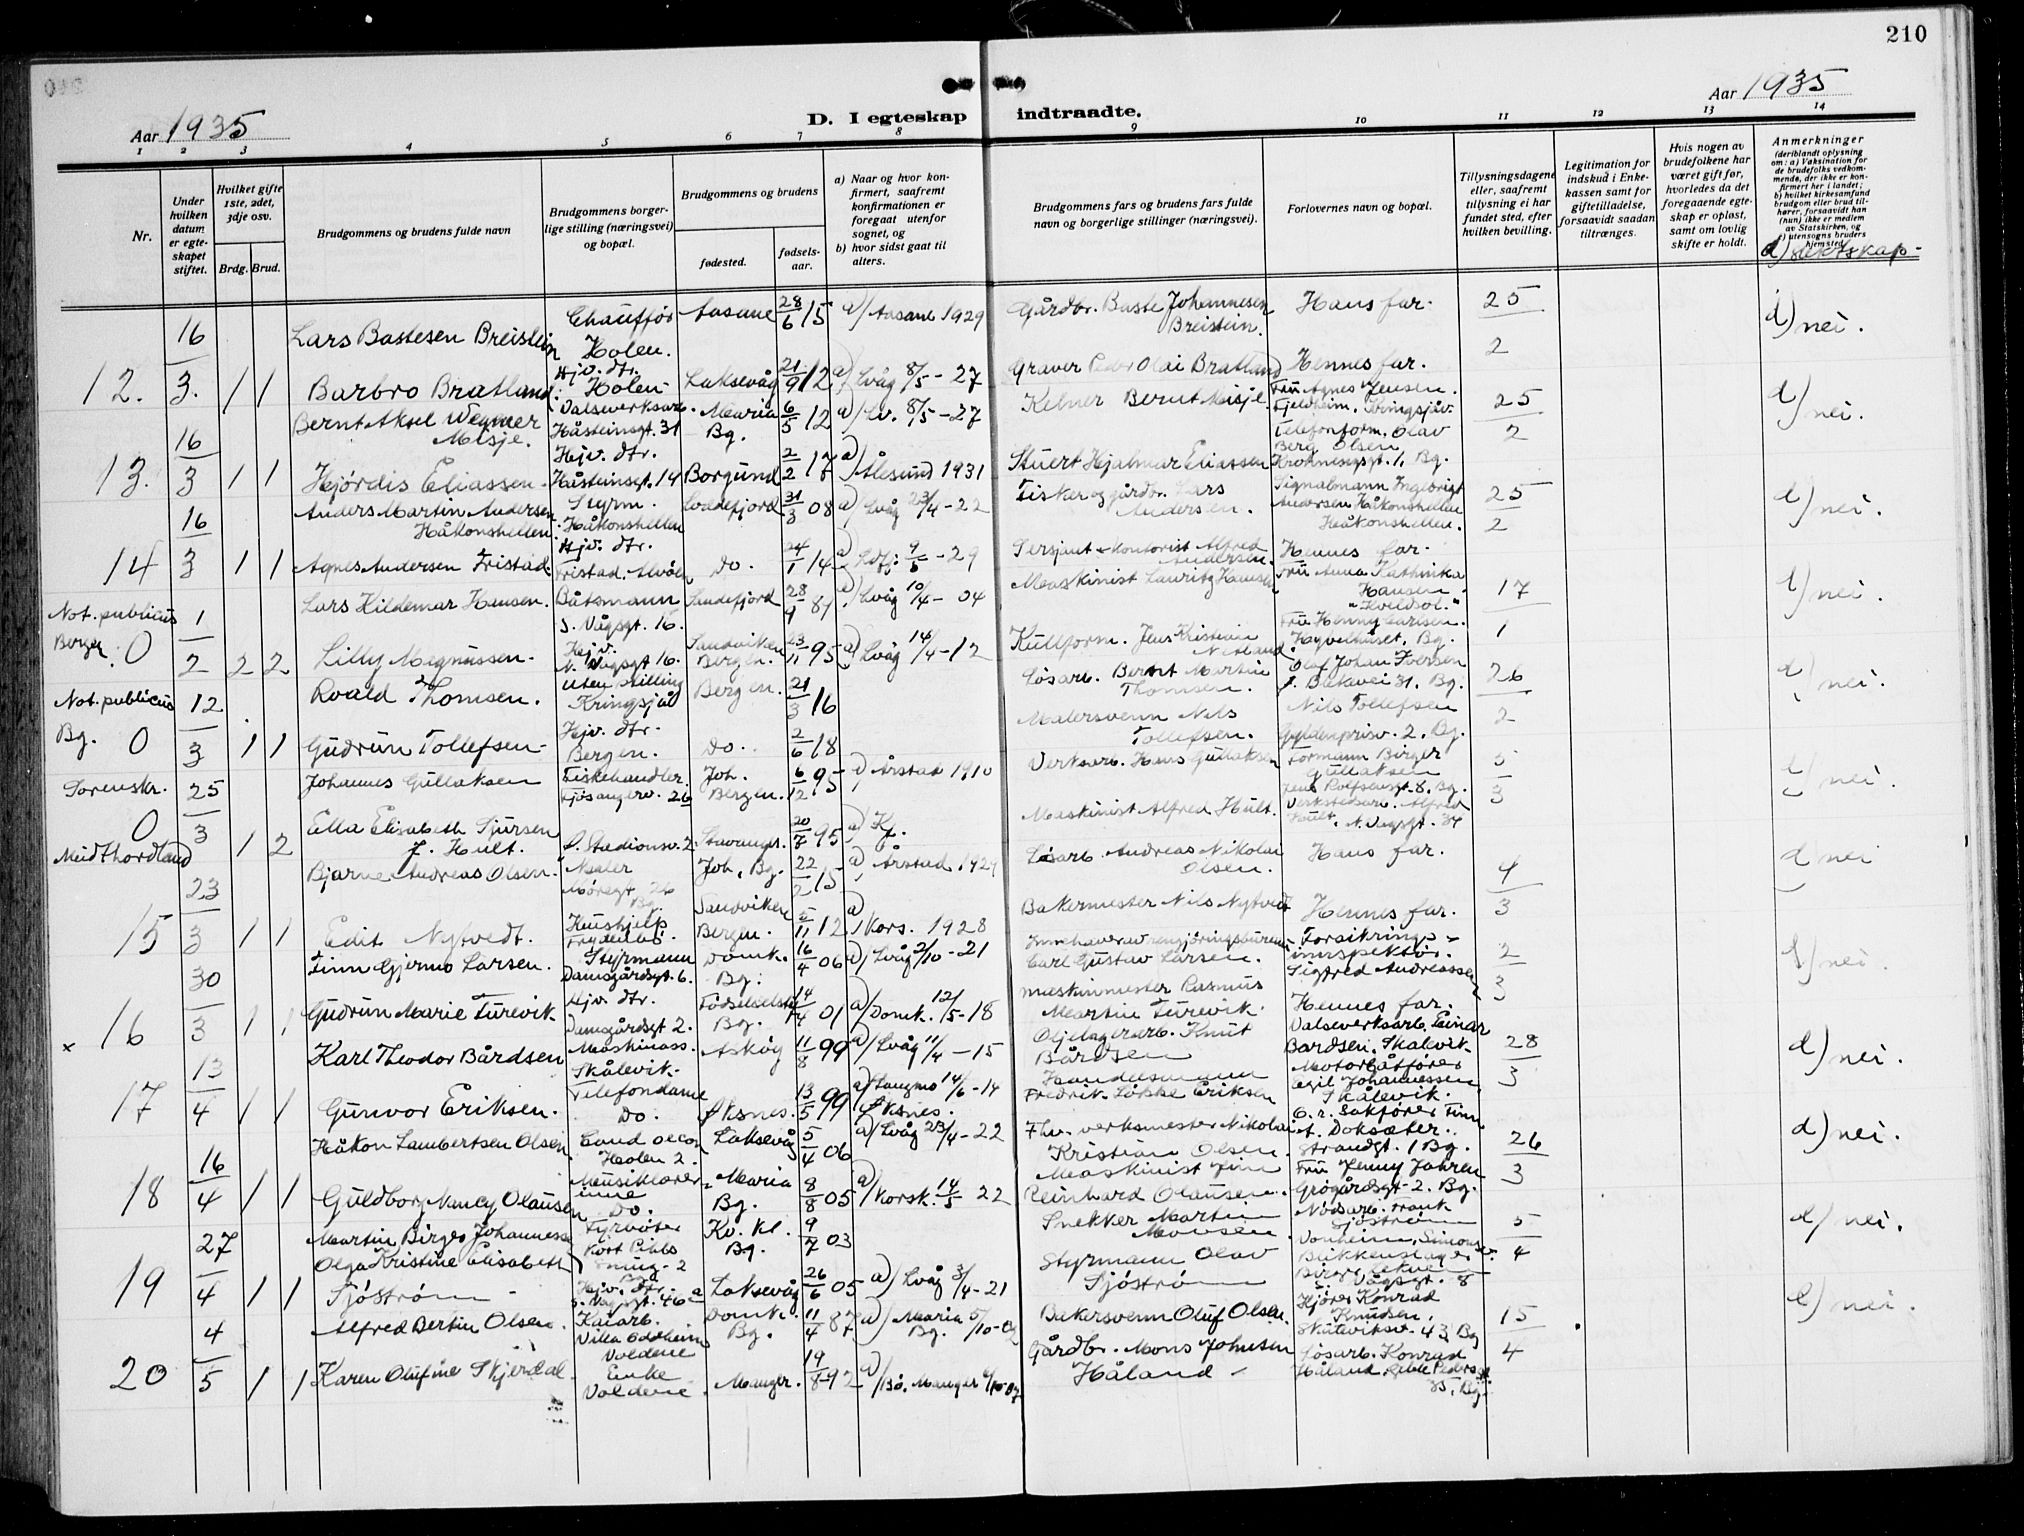 210
Aar 1935
D. I egteskap indtraadte.
Aar 1935
1 2 3 4 5 6 7 8 9 10 11 12 13 14
Nr.
Under hvilken datum er egteskapet stiftet.
Hvilket gifte 1ste, 2det, 3dje osv.
Brdg. Brud.
Brudgommens og brudens fulde navn
Brudgommens borgerlige stilling (næringsvei) og bopæl.
Brudgommens og brudens
fødested.
fødselsaar.
a) Naar og hvor konfirmert, saafremt konfirmationen er foregaat utenfor sognet, og
b) hvor sidst gaat til alters.
Brudgommens fars og brudens fars fulde navn og borgerlige stillinger (næringsvei).
Forlovernes navn og bopæl.
Tillysningsdagene eller, saafremt tillysning ei har fundet sted, efter hvilken bevilling.
Legitimation for indskud i Enkekassen samt for giftetilladelse, forsaavidt saadan tiltrænges.
Hvis nogen av brudefolkene har været gift før, hvorledes da det foregaaende egteskap er opløst, samt om lovlig skifte er holdt.
Anmerkninger
(deriblandt oplysning om: a) Vaksination for de brudefolks vedkommende, der ikke er konfirmert her i landet; b) hvilket kirkesamfund brudgom eller brud tilhører, forsaavidt han (hun) ikke er medlem av Statskirken, og c) utensogns bruders hjemsted.
d) slektskap-
12. 16/3. 1 1 Lars Bastesen Breistein Chauffør Holen. Aasane 28/6 15 a) Aasane 1929 Gårdbr. Baste Johannesen Breistein. Hans far. 25 2 d) nei.
Barbro Bratland Hjv. dtr. Holen- Laksevåg 21/9 12 a) Lvåg 8/5-27 Graver Peder Olai Bratland Hennes far.
13. 16/3 1 1 Bernt Aksel Wegner Misje. Valseverksarb. Håsteinsgt. 31 Maria Bg. 6/5 12 a) Lv. 8/5-27 Kelner Bernt Misje Fru Agnes Jensen. Fjeldheim, Kringsjåv. 25 2 d) nei.
Hjørdis Eliassen- Hejv. dtr. Håsteinsgt. 14 Borgund 2/2 17 a) Ålesund 1931 Stuert Hjalmar Eliassen Telefonform. Olav Berg Olsen Krohnengsgt. 1, Bg.
14 16/3 1 1 Anders Martin Andersen Håkonshellen Styrm. Håkonshellen Loddefjord 31/3 08 a) Lvåg 23/4-22 Fisker og gårdbr. Lars Andersen. Signalmann Ingebrigt Andersen Håkonshellen Håkonshellen. 25 2 d) nei.
Agnes Andersen Fristad. Hjv. dtr. Fristad. Alvøen Do. 24/1 14 a) Ldfj. 9/5-29 Sersjant & kontorist Alfred Andersen. Hennes far.
Not. publicus Bergen 0 1/2 2 2 Lars Hildemar Hansen. Båtsmann S. Vågsgt. 16. Sandefjord 28/9 81 a) Lvåg 10/4-04 Maskinist Lauritz Hansen Fru Anna Kathinka Hansen "Kveldsol." 17 1 d) nei.
Lilly Magnussen- Hejv. N. Vågsgt 16. Sandviken Bergen. 23/11 95 a) Lvåg 14/4-12 Kullform. Jens Kristian Fru Henny Carlsen. Høyvelhuset, Bg.
Not. publicus Bg. 0 12/3 1 1 Roald Thomsen. Uten stilling Kringsjåv Bergen. 21/3 16 Løsarb. Bernt Martin Thomsen. Olaf Johan Iversen J. Bakavei 31. Bg. 26 2 d) nei.
Gudrun Tollefsen- Hejv. dtr. Bergen. Do. 2/6 18 Malersvenn Nils Tollefsen. Nils Tollefsen Gyldenprisv. 2. Bg.
Sorenskr. 0 Midthordland 25/3 1 2 Johannes Gullaksen Fiskehandler Fjøsangerv. 26 Joh. Bergen. 6/12 95 a) Årstad 1910 Verksarb. Hans Gullaksen Formann Birger Gullaksen Jens Rolfsensgt. 8. Bg. 3 3 d) nei.
Ella Elisabeth Sjursen f. Hult. Ø. Stadionsv. 2 Stavanger. 20/7 95 a) Kf. Maskinist Alfred Hult. Verkstedsarb. Alfred Hult, N. Vågsgt. 34
15 23/3 1 1 Bjarne Andreas Olsen. Maler Møregt 26 Bg. Joh. Bg. 22/2 15 a) Årstad 1929 Løsarb. Andreas Nikolai Olsen. Hans far. 4 3 d) nei
Edit Nytvedt. Hushjelp Frydenbø. Sandviken Bergen. 5/11 12 a) Kors. 1928 Bakermester Nils Nytvedt Hennes far.
16 30/3 1 1 Finn Gjermo Larsen. Styrmann Damsgårdsgt. 6. Domk. Bg. 16/4 06 a) Lvåg 2/10-21 Innehaver av rengjøringsbureau Carl Gustav Larsen. Forsikrings-innspektør. Sigfred Andreassen 2 3 d) nei.
Gudrun Marie Turevik Hjv. dtr. Damsgårdsgt 2. Fødselsstif. Bg. 14/4 01 a) Domk. 12/5-18 Maskinmester Rasmus Martin Turevik. Hennes far.
x 17 13/4 1 1 Karl Theodor Bårdsen Maskinass. Skålevik- Askøy 11/8 99 a) Lvåg 11/4-15 Oljelagerarb. Knut Bårdsen Valseverksarb. Einar Bårdsen. Skålevik- 28 3 d) nei.
Gunvor Eriksen. Telefondame Do. Øksnes. 13/5 99 a) Langenes 14/6-14 Øksnes. Handelsmann Fredrik Løkke Eriksen Motorbåtfører Egil Johannessen Skålevik.
18 16/4 1 1 Håkon Lambertsen Olsen. Cand. oecon Holen 2. Laksevåg 5/4 06 a) Lvåg 23/4-22 Fhv. verksmester Nikolai Kristian Olsen. O. r. Sakfører Finn Doksæter. Strandgt. 1 Bg. 26 3 d) nei.
Guldborg Nancy Olausen Musiklærerinne Do. Maria Bg. 8/8 05 a) Korsk. 14/5 22 Maskinist Finn Reinhard Olausen. Fru Jenny Jahren Grøgårdsgt. 2. Bg.
19 27/4 1 1 Martin Birger Johannessen Fyrbøter Kort Pibls Smug. 2 Bg Kv. Kl. Bg. 9/7 03 Snekker Martin Monsen Nødsarb. Frank Sjøstrøm Vonheim, Simonsv. 5 4 d) nei.
Olga Kristine Elisabeth Sjøstrøm- Hejv. dtr. S. Vågsgt. 46a Laksevåg 26/6 05 a) Lvåg 3/4-21 Styrmann Olav Sjøstrøm Blikkenslager Birger S. Vågsgt. 8
20 4/5 1 1 Alfred Bertin Olsen. Kaiarb. Villa Solheim Voldene Domk. Bg. 11/4 87 a) Maria Bg. 5/10-02 Bakersvenn Oluf Olsen. Hjører Konrad Knudsen, Skuteviksv. 43, Bg 15 4 d) nei.
Karen Olufine Skjerdal Enke Voldene Manger. 19/8 92 a) Bø. Manger 6/10-07 Gårdbr. Mons Johnsen Håland- Løsarb. Konrad Håland, 35, Bg.